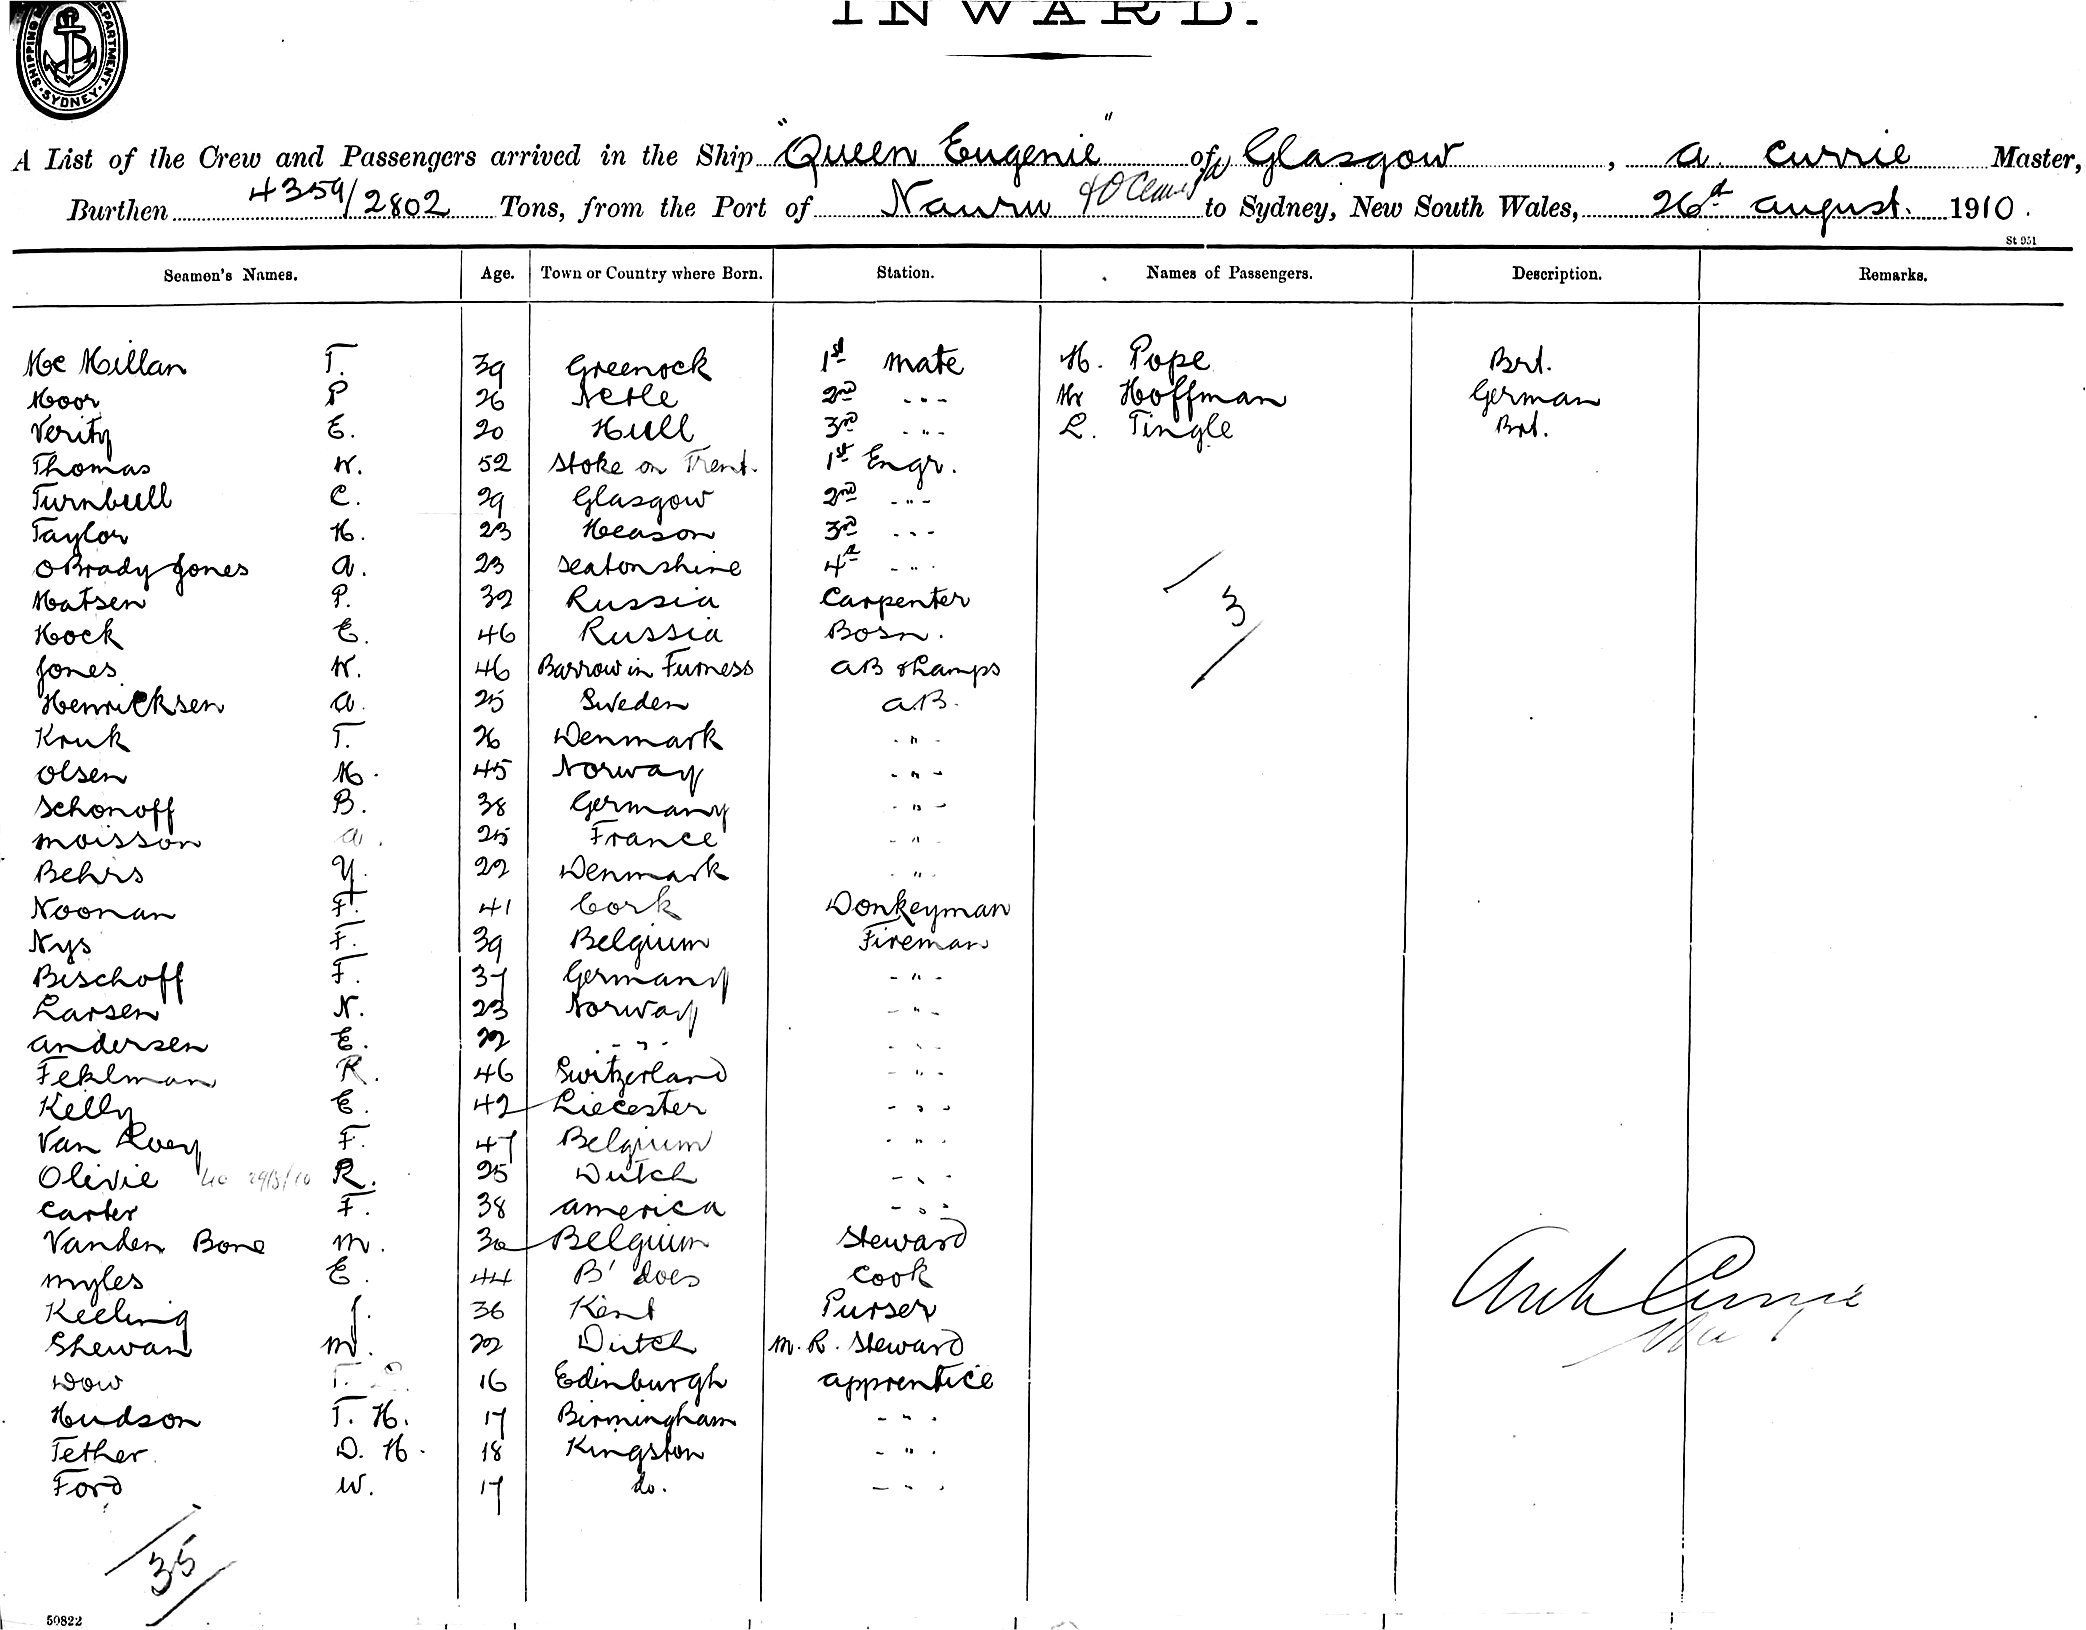 SHIPPING DEPARTMENT. SYDNEY.
INWARD.
A List of the Crew and Passengers arrived in the Ship "Queen Eugenie" of Glasgow, A Currie Master,
Burthen 4359/2802 Tons, from the Port of Nauru & Ocean Is to Sydney, New South Wales, 26th August. 1910.
St 951
Seamen's Names. Age. Town or Country where Born. Station. Names of Passengers. Description. Remarks.
Mc Millan T. 39 Greenock 1st Mate H. Pope Brt.
Moor P 26 2nd - " - Mr Hoffman German
Verity E. 20 Hull 3rd - " - L. Tingle Brt.
Thomas W. 52 Stoke on Trent. 1st Engr.
Turnbull C. 29 Glasgow 2nd - " -
Taylor H. 23 Heason 3rd - " -
O Brady Jones A. 23 Seatonshire 4th - " -
Matsen P. 32 Russia Carpenter 3
Hock E. 46 Russia Bosn.
Jones W. 46 Barrow in Furness AB & Lamps
Henricksen A. 25 Sweden A.B.
Kruk T. 26 Denmark - " -
Olsen M. 45 Norway - " -
Schonoff B. 38 Germany - " -
Moisson A. 25 France - " -
Behrs Y. 22 Denmark - " -
Noonan F. 41 Cork Donkeyman
Nys F. 39 Belgium Fireman
Bischoff F. 37 Germany - " -
Larsen N. 23 Norway - " -
Andersen E. 22 - " - - " -
Feklman R. 46 Switzerland - " -
Kelly E. 42 Liecester - " -
Van Roey F. 47 Belgium - " -
Olivie R. 25 Dutch - " -
Carter F. 38 America - " -
Vanden Bone M. 30 Belgium Steward
Myles E. 44 B'does Cook
Keeling J. 36 Kent Purser
Shewan M. 22 Dutch M. R. Steward
Dow T. 16 Edinburgh Apprentice
Hudson T. H. 17 Birmingham - " -
Tether D. H. 18 Kingston - " -
Ford W. 17 do. - " -
Arch Currie
35
50822